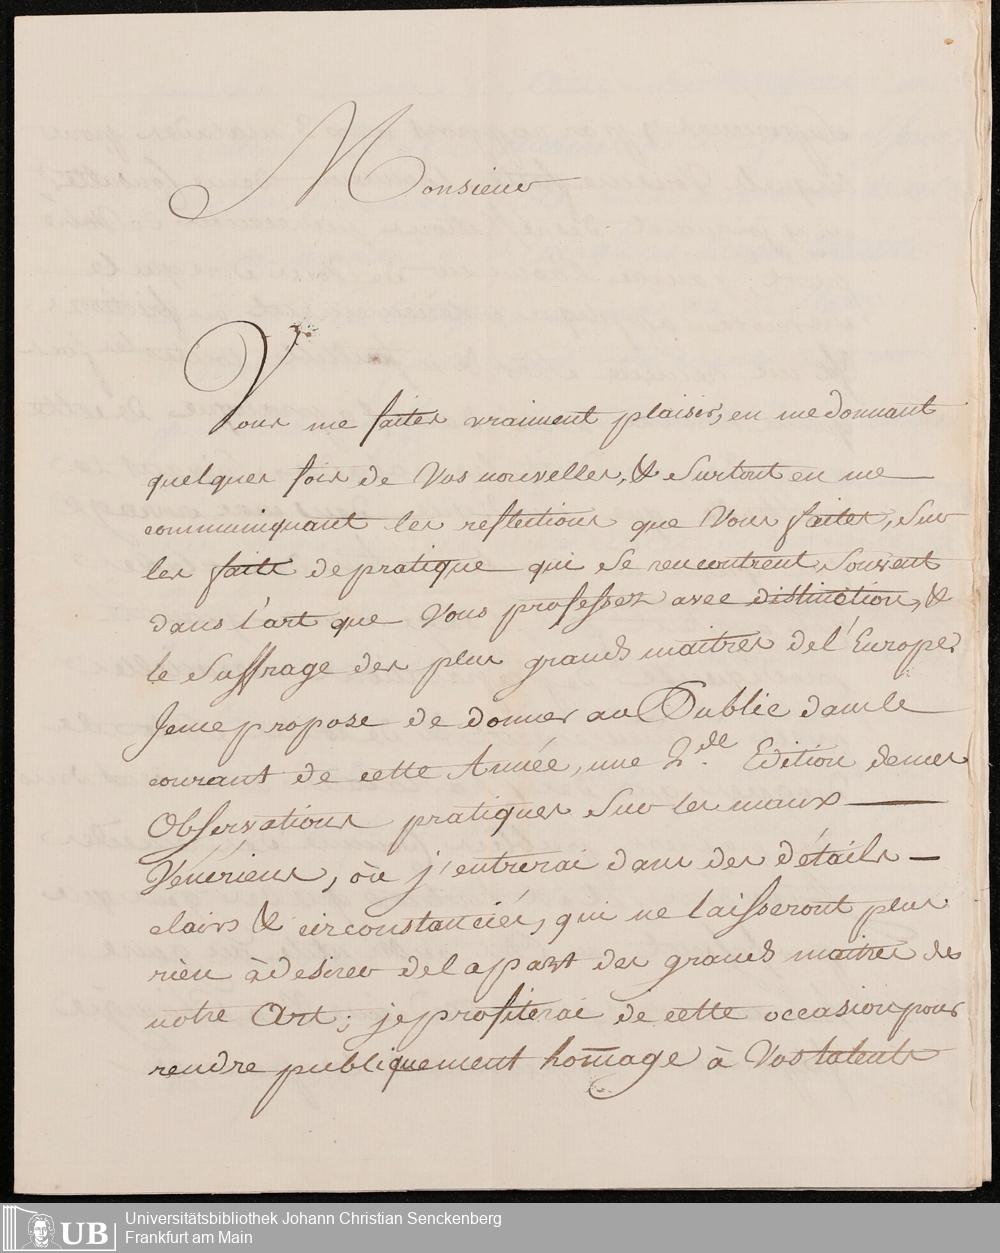 Monsieur
Vous me faites vraiment plaisir, en me donnant
quelques fois de Vos nouvelles, & Surtout en me
communiquant les reflections que Vous faites, Sur
les faits de pratique qui Se rencontrent Souvent
dans l'art que Vous professez avec distinction, &
le Suffrage des plus grands maitres de l'Europe.
Je me propose de donner au Public dans le
courant de cette Année, une 2.de Edition de mes
Observations pratiques Sur les maux
Vénériens, où j'entrerai dans des détails
clairs & circonstanciés, qui ne laisseront plus
rien à desirer de la part des grands maitres de
notre Art; je profiterai de cette occasion pour
rendre publiquement homage à Vos talents
UB
Universitätsbibliothek Johann Christian Senckenberg
Frankfurt am Main